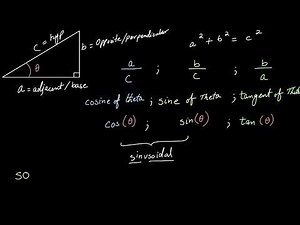 c = hyp
θ
b = Opposite/perpendicular
a = adjacent / base
a² + b² = c²
a/c ; b/c ; b/a
cosine of theta ; sine of Theta ; tangent of Theta
cos(θ) ; sin(θ) ; tan(θ)
sinusoidal
SO